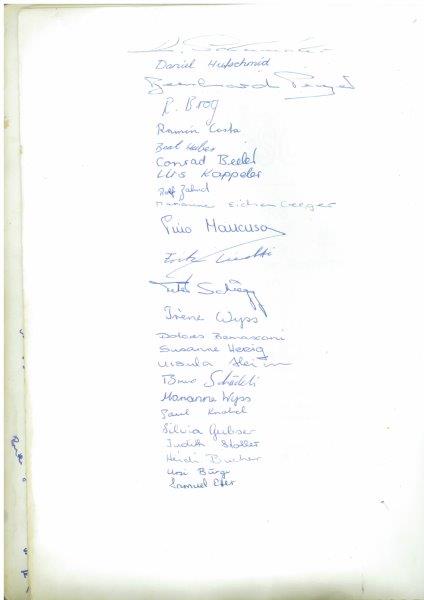 Daniel Hufschmid
Bernhard
R. Brog
Ramón Costa
Beat Huber
Conrad Bedel
Urs Kappeler
Rolf Zahnd
Marianne Eichenberger
Pino Mancuso
Fritz
Peter Schlegg
Irène Wyss
Dolores Bernasconi
Susanne Herzig
Ursula
Bruno Schädeli
Marianne Wyss
Paul Knobel
Silvia Gubser
Judith Stoller
Heidi Bucher
Ursi Bürgi
Samuel Eter